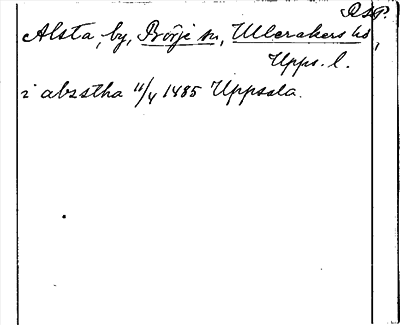 RAP.
Alsta, by, Börje sn, Ulleråkers hd,
Upps. l.
i alzstha 11/4 1485 Uppsala.